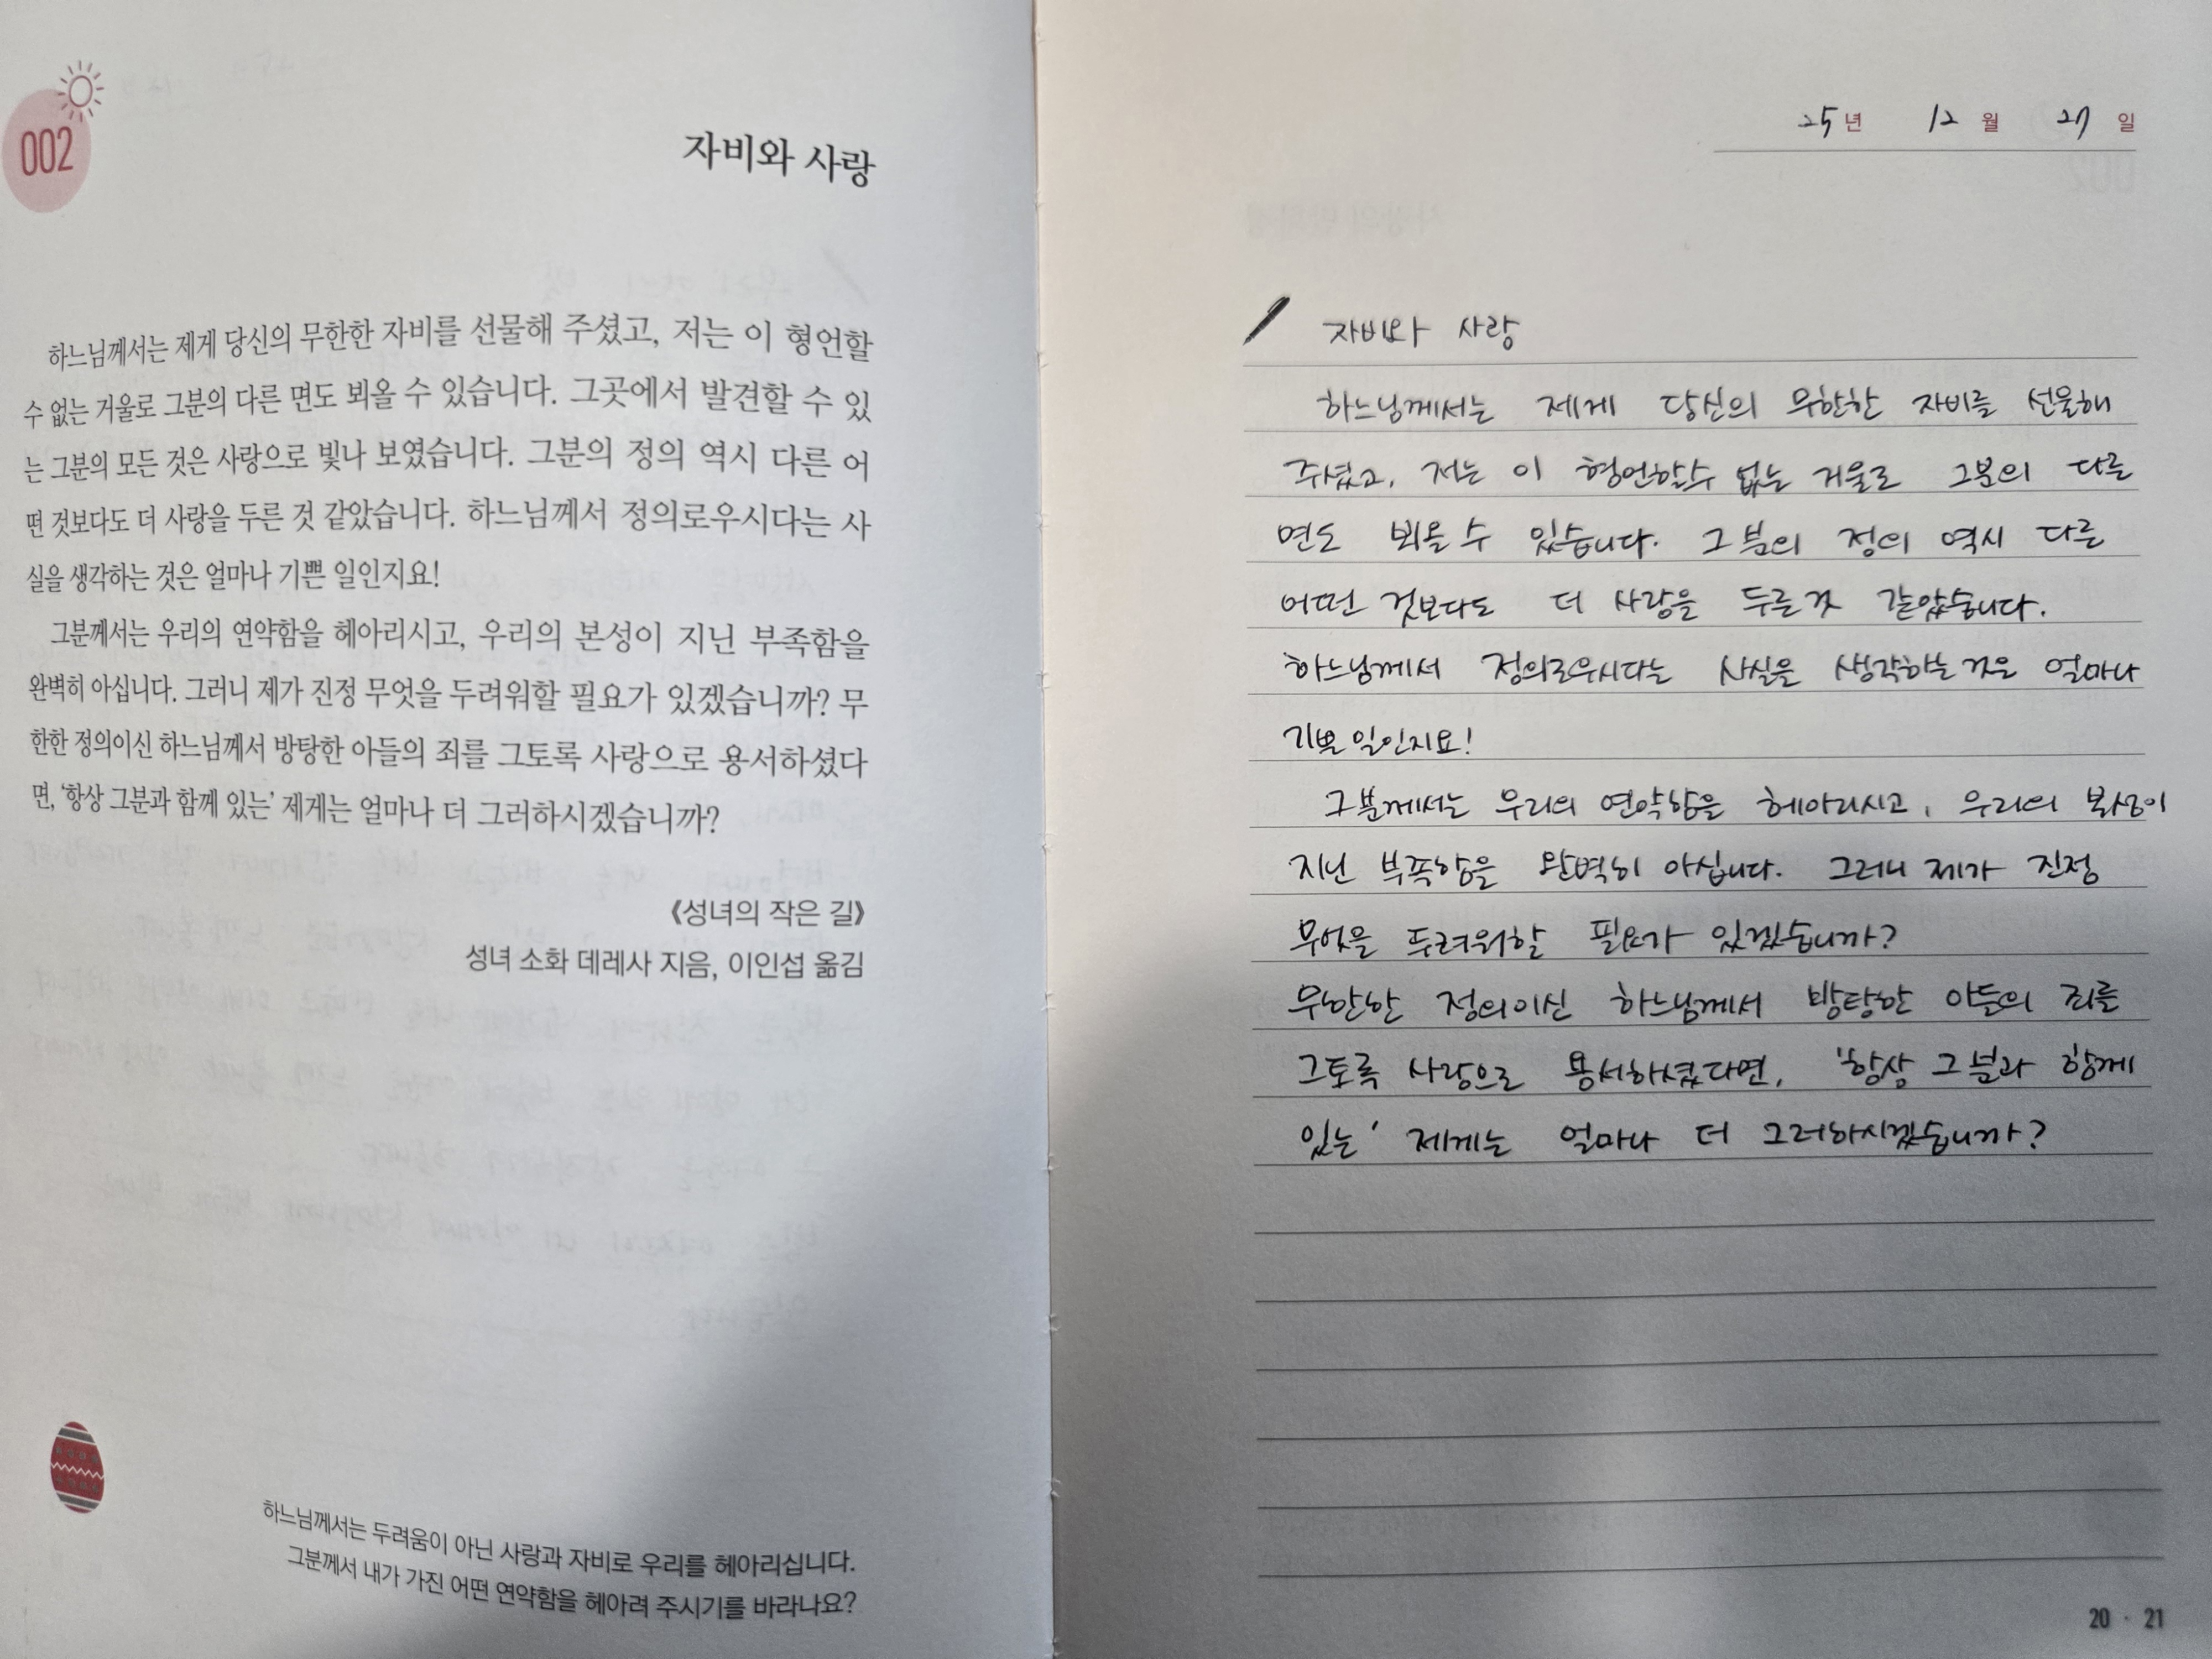 002
자비와 사랑
하느님께서는 제게 당신의 무한한 자비를 선물해 주셨고, 저는 이 형언할
수 없는 거울로 그분의 다른 면도 뵈올 수 있습니다. 그곳에서 발견할 수 있
는 그분의 모든 것은 사랑으로 빛나 보였습니다. 그분의 정의 역시 다른 어
떤 것보다도 더 사랑을 두른 것 같았습니다. 하느님께서 정의로우시다는 사
실을 생각하는 것은 얼마나 기쁜 일인지요!
그분께서는 우리의 연약함을 헤아리시고, 우리의 본성이 지닌 부족함을
완벽히 아십니다. 그러니 제가 진정 무엇을 두려워할 필요가 있겠습니까? 무
한한 정의이신 하느님께서 방탕한 아들의 죄를 그토록 사랑으로 용서하셨다
면, ‘항상 그분과 함께 있는’ 제게는 얼마나 더 그러하시겠습니까?
《성녀의 작은 길》
성녀 소화 데레사 지음, 이인섭 옮김
하느님께서는 두려움이 아닌 사랑과 자비로 우리를 헤아리십니다.
그분께서 내가 가진 어떤 연약함을 헤아려 주시기를 바라나요?
25년 12월 27일
자비와 사랑
하느님께서는 제게 당신의 무한한 자비를 선물해
주셨고, 저는 이 형언할수 없는 거울로 그분의 다른
면도 뵈올 수 있습니다. 그분의 정의 역시 다른
어떤 것보다도 더 사랑을 두른것 같았습니다.
하느님께서 정의로우시다는 사실을 생각하는 것은 얼마나
기쁜 일인지요!
그분께서는 우리의 연약함을 헤아리시고, 우리의 본성이
지닌 부족함을 완벽히 아십니다. 그러니 제가 진정
무엇을 두려워할 필요가 있겠습니까?
무한한 정의이신 하느님께서 방탕한 아들의 죄를
그토록 사랑으로 용서하셨다면, '항상 그분과 함께
있는' 제게는 얼마나 더 그러하시겠습니까?
20 · 21